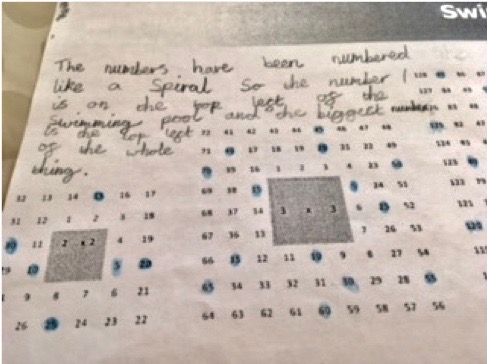 Swi
The numbers have been numbered
like a Spiral So the number 1
is on the top left of the
swimming pool and the biggest number
is the top left
of the whole
thing.
72 41 42 43 44 45 46 47 48
71 40 17 18 19 20 21 22 49
70 39 16 1 2 3 4 23 50
69 38 15 5 24 51
68 37 14 3 x 3 6 25 52
67 36 13 7 26 53
66 35 12 11 10 9 8 27 54
65 34 33 32 31 30 29 28 55
64 63 62 61 60 59 58 57 56
32 13 14 15 16 17
31 12 1 2 3 18
30 11 2 x 2 4 19
29 10 5 20
9 8 7 6 21
26 25 24 23 22